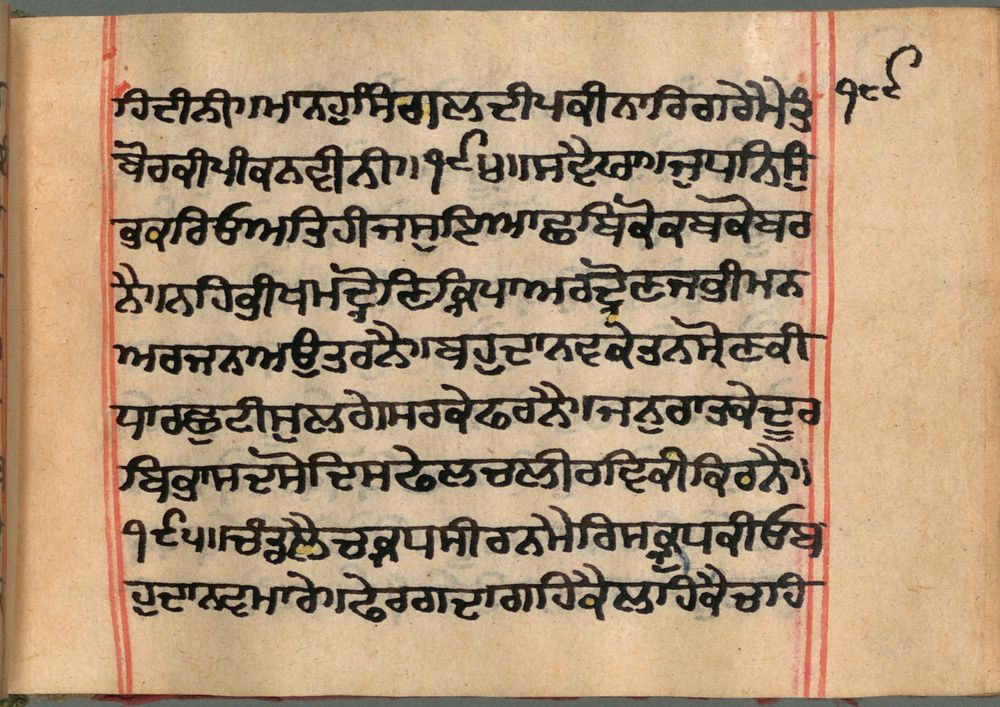 ਹਿਦੀਨੀ॥ਮਾਨਹੁਸਿੰਗਲਦੀਪਕੀਨਾਰਿਗਰੇਮੈਤੰ
ਬੋਰਕੀਪੀਕਨਵੀਨੀ॥੧੯੪॥ਸਵੈਯਾ॥ਜੁਧਨਿਸੁੰ
ਭਕਰਿਓਅਤਿਹੀਜਸੁਇਆਛਬਿਕੋਕਬਕੋਬਰ
ਨੈ॥ਨਹਿਭੀਖਮੰਦ੍ਰੋਣਿਕ੍ਰਿਪਾਅਰਦ੍ਰੋਣਜਭੀਮਨ
ਅਰਜਨਅਉਤਰਨੈ॥ਬਹੁਦਾਨਵਕੇਤਨਸ੍ਰੋਣਕੀ
ਧਾਰਛੁਟੀਸੁਲਗੇਸਰਕੇਫਰਨੈ॥ਜਨੁਰਾਤਕੇਦੂਰ
ਬਿਭਾਸਦਸੋਦਿਸਫੇਲਚਲੀਰਵਿਕੀਕਿਰਨੈ॥
੧੯੫॥ਚੰਡਲੈਚਕ੍ਰਧਸੀਰਨਮੈਰਿਸਕ੍ਰੁਧਕੀਓਬ
ਹੁਦਾਨਵਮਾਰੇ॥ਫੇਰਗਦਾਗਹਿਕੈਲਹਿਕੈਚਹਿ
੧੮੯